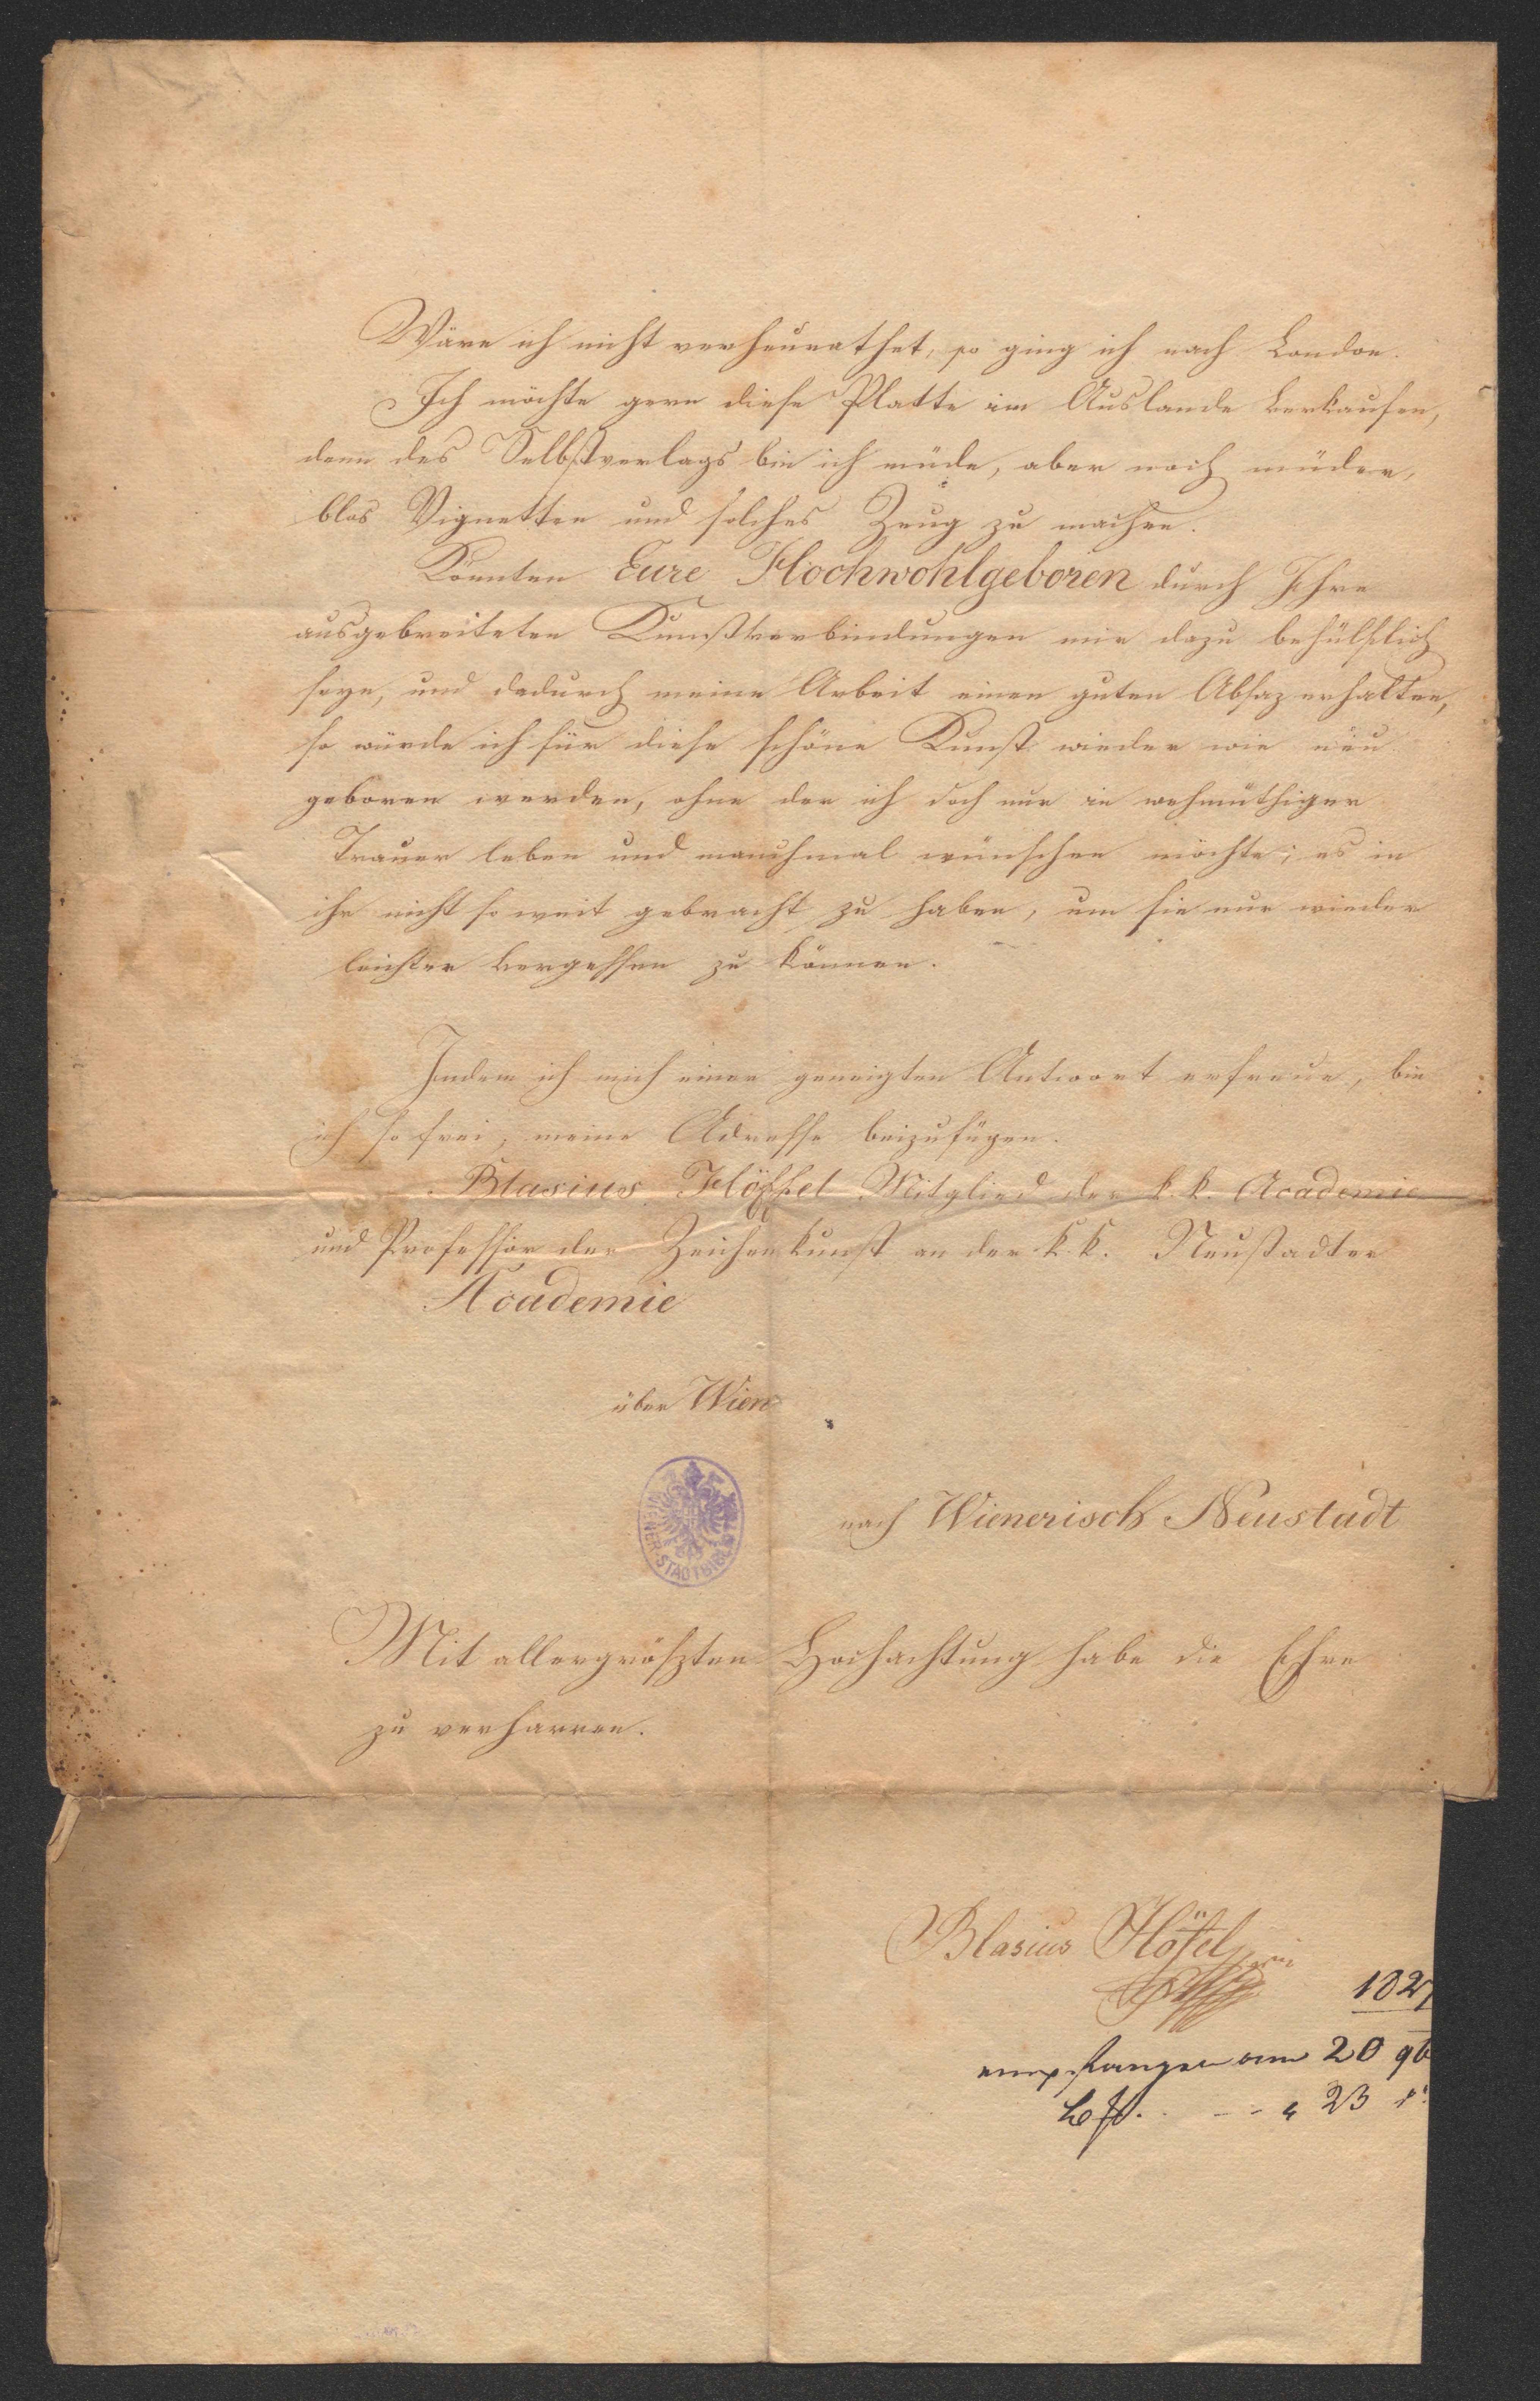 Wäre ich nicht verheurathet, so ging ich nach London.
Ich möchte gern diese Platte im Auslande verkaufen,
denn des Selbstverlags bin ich müde, aber noch müder,
blos Vignetten und solches Zeug zu machen.
Könnten Eure Hochwohlgeboren durch Ihre
ausgebreiteten Kunstverbindungen mir dazu behülflich
seyn, und dadurch meine Arbeit einen guten Absaz erhalten,
so würde ich für diese schöne Kunst wieder wie neu
geboren werden, ohne der ich doch nur in wehmüthiger
Trauer leben und manchmal wünschen möchte, es in
ihr nicht so weit gebracht zu haben, um sie nur wieder
leichter vergessen zu können.
Indem ich mich einer geneigten Antwort erfreue, bin
ich so frei, meine Adresse beizufügen.
Blasius Höffel Mitglied der k. k. Academie
und Professor der Zeichenkunst an der k. k. Neustadter
Academie
über Wien
nach Wienerisch Neustadt
WIENER STADTBIBL
Mit allergrößten Hochachtung habe die Ehre
zu verharren.
Blasius Höfel
182
empfangen am 20 9b
23